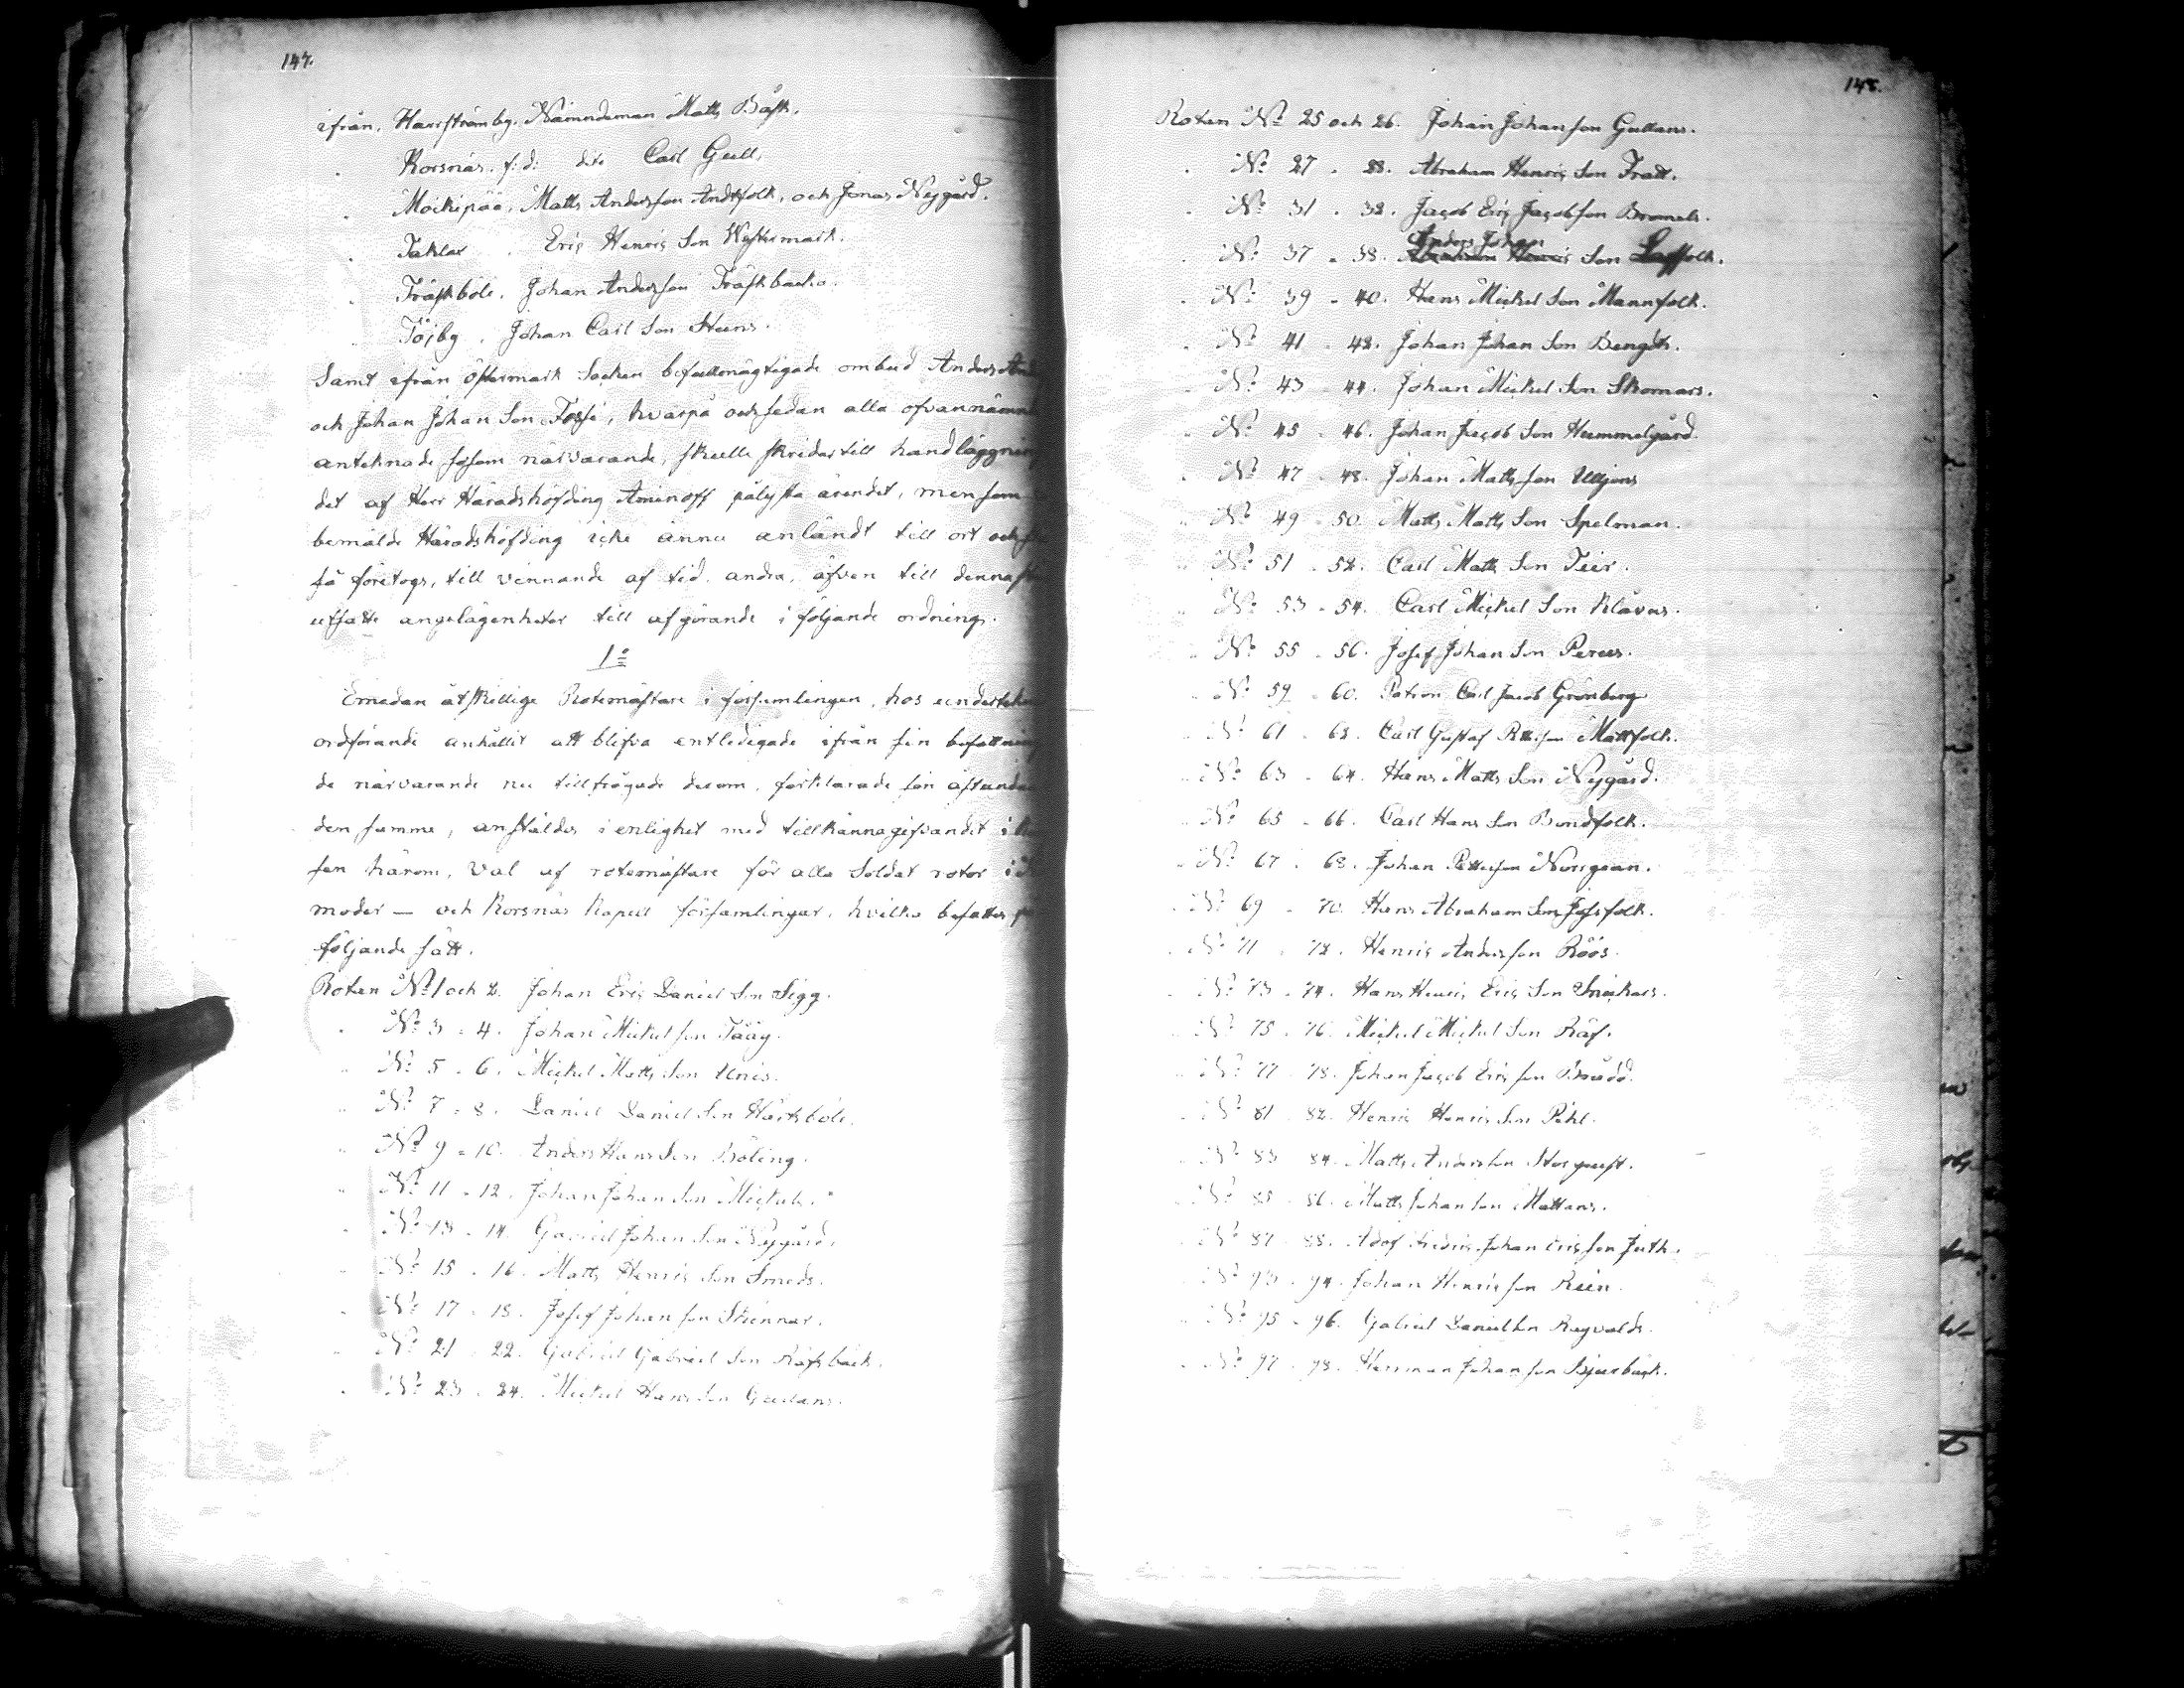 147.
ifrån, Harrströmby, Nämndeman Matts Båsk.
" Korsnäs. f:d: dito Carl Gull,
" Moikipää, Matts Andersson Andtfolk, och Jonas Nygård.
" Taklax. Eric Henric Son Westermark.
" Träskböle. Johan Andersson Träskbacka.
" Töjby. Johan Carl Son Steens.
Samt ifrån Östermark Socken befullmägtigade ombud Anders
och Johan Johan Son Forsi, hvarpå och sedan alla ofvannämn
antecknade såsom närvarande, skulle skridas till handläggnin
det af Herr Häradshöfding Aminoff pålysta ärendet, men som
bemälde Häradshöfding icke ännu anländt till ort och
så företogs, till vinnande af tid, andra, äfven till denna
utsatte angelägenheter till afgörande i följande ordning.
1o
Emedan åtskillige Rotemästare i församlingen, hos undertekn
ordförande anhållit att blifva entledigade ifrån sin befattning
de närvarande nu tillfrågade derom, förklarade sin åstundan
den samme, anstäldes i enlighet med tillkännagifvandet i
sen härom, val af rotemästare för alla Soldat rotor i
moder — och Korsnäs Kapell församlingar, hvilka befattes
följande sätt.
Roten No 1 och 2. Johan Eric Daniel Son Sigg.
" No 3 " 4. Johan Mickel son Tååg.
" No 5 " 6. Mickel Matts Son Unis.
" No 7 " 8. Daniel Daniel Son Hårksböle.
" No 9 " 10. Anders Hans Son Böling.
" No 11 " 12. Johan Johan Son Mickels.
" No 13 " 14. Gabriel Johan Son Nygård.
" No 15 " 16. Matts Henric Son Smeds.
" No 17 " 18. Josef Johan son Skinnar.
" No 21 " 22. Gabriel Gabriel Son Räfsbäck.
" No 23 " 24. Mickel Hans Son Gullans.
148.
Roten No 25 och 26. Johan Johan son Gullans.
" No 27 " 28. Abraham Henric Son Fratt.
" No 31 " 32. Jacob Eric Jacobson Bromels.
Anders Johan
" No 37 " 38. Abraham Henric Son Lassfolk.
" No 39 " 40. Hans Mickel Son Mannfolk.
" No 41 " 42. Johan Johan Son Bength.
" No 43 " 44. Johan Mickel Son Skomars.
" No 45 " 46. Johan Jacob Son Hummelgård.
" No 47 " 48. Johan Matts son Ulljens
" No 49 " 50. Matts Matts Son Spelman.
" No 51 " 52. Carl Matts Son Teir.
" No 53 " 54. Carl Mickel Son Klåvus.
" No 55 " 56. Josef Johan Son Perus.
" No 59 " 60. Patron Carl Jacob Grönberg
" No 61 " 62. Carl Gustaf Petterson Mattfolk.
" No 63 " 64. Hans Matts Son Nygård.
" No 65 " 66. Carl Hans Son Bondfolk.
" No 67 " 68. Johan Petterson Norrgran.
" No 69 " 70. Hans Abraham Son Josfolk.
" No 71 " 72. Henric Anders son Röös.
" No 73 " 74. Hans Henric Eric Son Snickars.
" No 75 " 76. Mickel Mickel Son Räf.
" No 77 " 78. Johan Jacob Eric son Brudd.
" No 81 " 82. Henric Henric Son Pihl.
" No 83 " 84. Matts Anders son Storgust.
" No 85 " 86. Matts Johan son Mattans.
" No 87 " 88. Adolf Fredric Johan Ericsson Juth.
" No 93 " 94. Johan Henric son Rein.
" No 95 " 96. Gabriel Daniel Son Ragvalds.
" No 97 " 98. Herrman Johan son Bjurbäck.